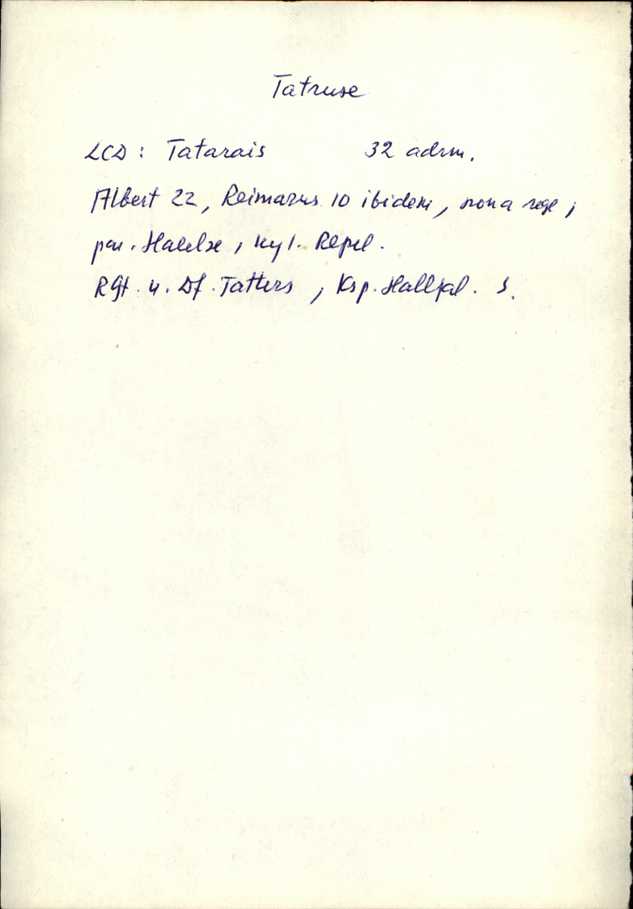 Tatruse
LCD: Tatarais 32 adrm.
Albert 22, Reimarus 10 ibidem, nona rege;
par. Halelae, kyl. Repel.
Rgt. u. Df. Tatters, Ksp. Halljal. S.